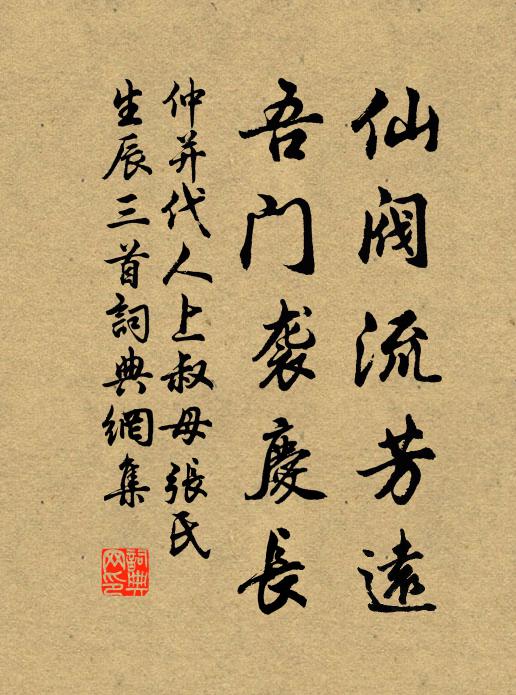 仙阀流芳遠
吾门袭慶長
仲并代人上叔母張氏
生辰三首詞典網集
詞典
网印